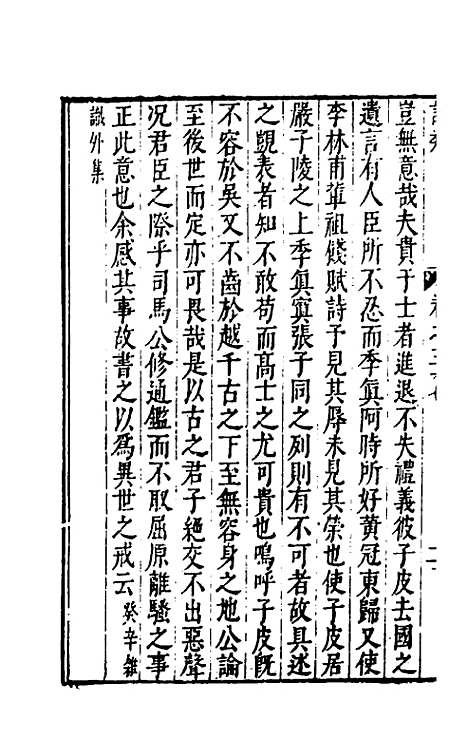 豈無意哉夫貴于士者進退不失禮義彼子皮去國之
遺言有人臣所不忍而季眞阿時所好黄冠東歸又使
李林甫軰祖餞賦詩予見其辱未見其榮也使子皮居
嚴子陵之上季眞寘張子同之列則有不可者故具述
之覬表者知不敢苟而髙士之尤可貴也鳴呼子皮旣
不容於吳又不齒於越千古之下至無容身之地公論
至後世而定亦可畏哉是以古之君子絶交不出惡聲
况君臣之際乎司馬公修通鑑而不取屈原離騷之事
正此意也余感其事故書之以爲異世之戒云 癸辛雜
識外集